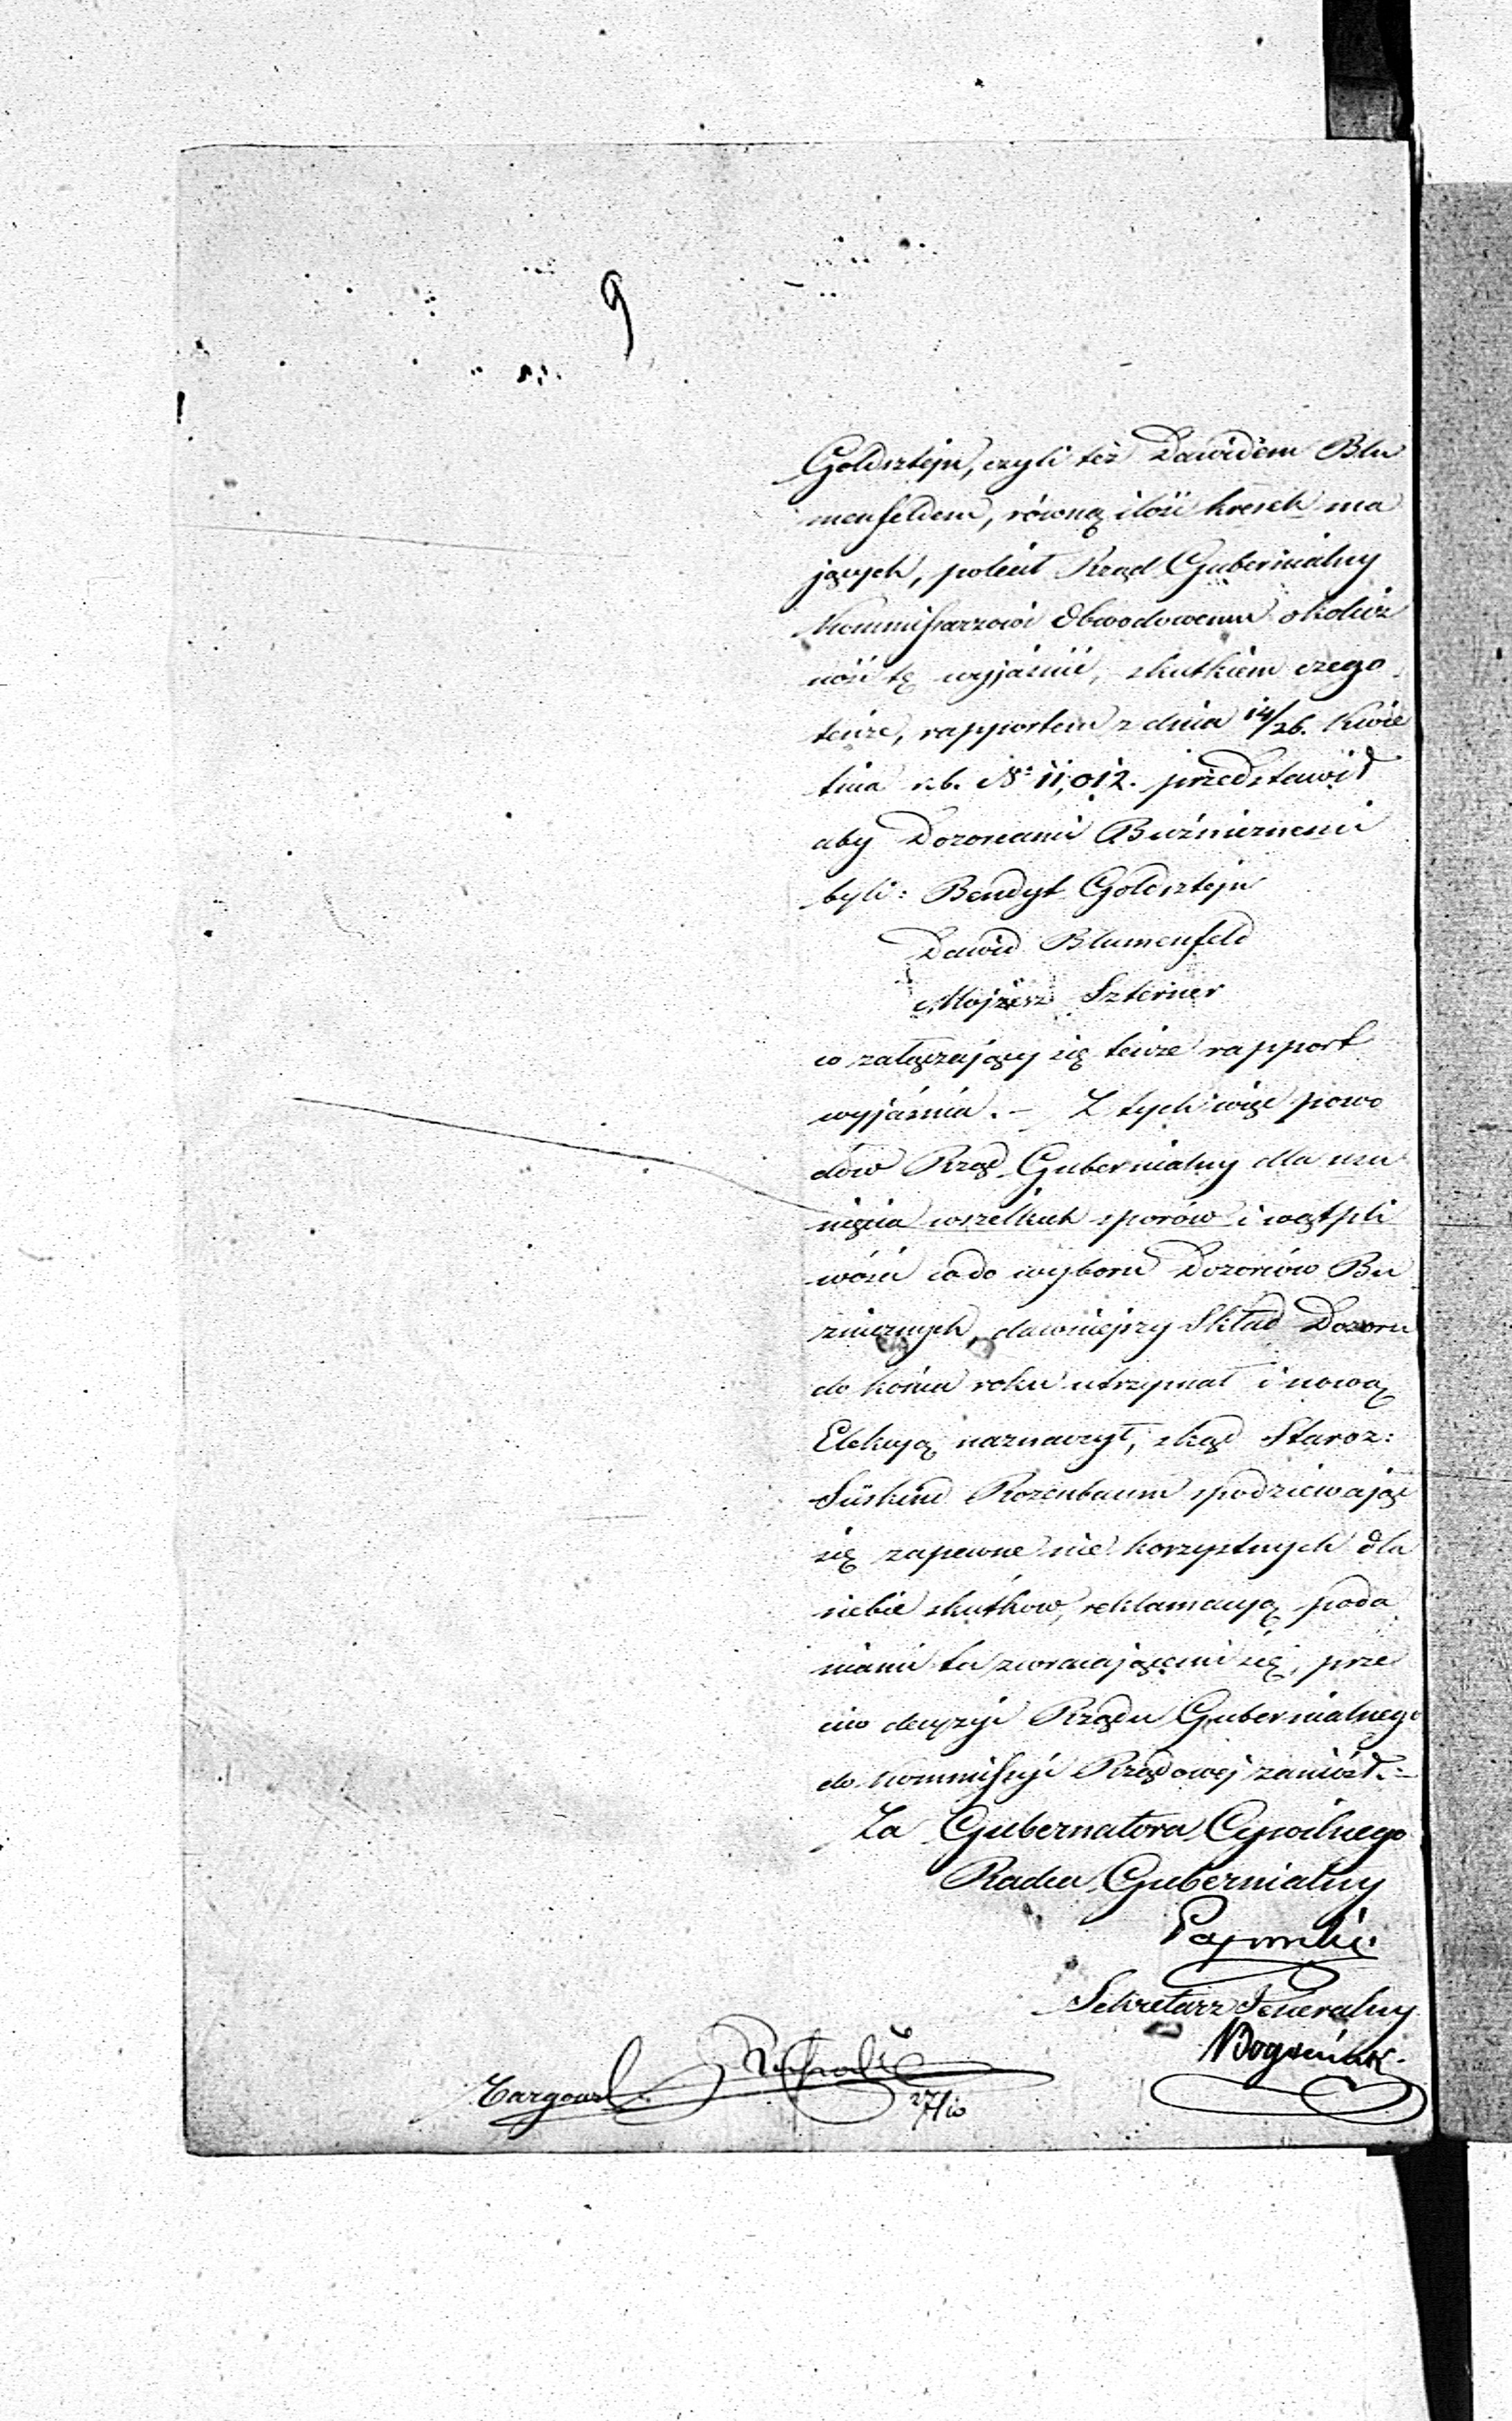 9
Goldsztejn, czyli też Dawidem Blu
menfeldem, równą ilość kresek ma
jących, polecił Rząd Gubernialny
Kommissarzowi Obwodowemu okolicz
ność tę wyjaśnić, skutkiem czego
tenże, rapportem z dnia 14/26. Kwie
tnia r.b. No 11,012. przedstawił
aby Dozorcami Bużnicznemi
byli: Bendyt Goldsztejn
Dawid Blumenfeld
Mojżesz Szterner
co załączający się tenże rapport
wyjaśnia. – Z tych więc powo
dów Rząd Gubernialny dla usu
nięcia wszelkich sporów i wątpli
wości co do wyboru Dozorców Bu
żnicznych, dawniejszy Skład Dozoru
do końca roku utrzymał i nową
Elekcyą naznaczył, skąd Staroz:
Süskind Rozenbaum spodziewając
się zapewne nie korzystnych dla
siebie skutków, reklamacyą poda
niami tu zwracającemi się, prze
ciw decyzyi Rządu Gubernialnego
do Kommissyi Rządowej zaniósł. –
Za Gubernatora Cywilnego
Radca Gubernialny
Sekretarz Jeneralny
27/10